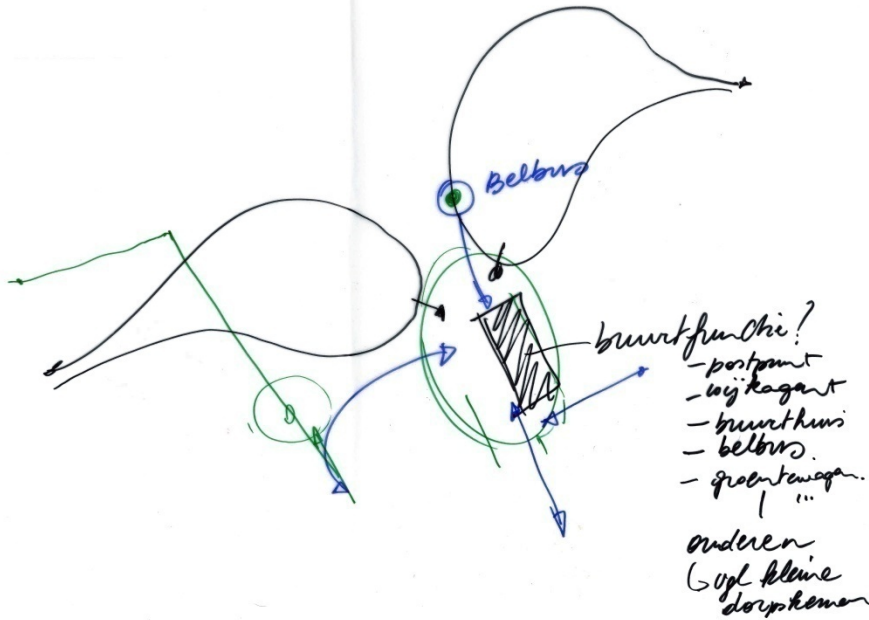 Belbus
buurtfunctie?
- postpunt
- wijkagent
- buurthuis
- belbus.
- groentewagen.
...
ouderen
vgl kleine
dorpskernen